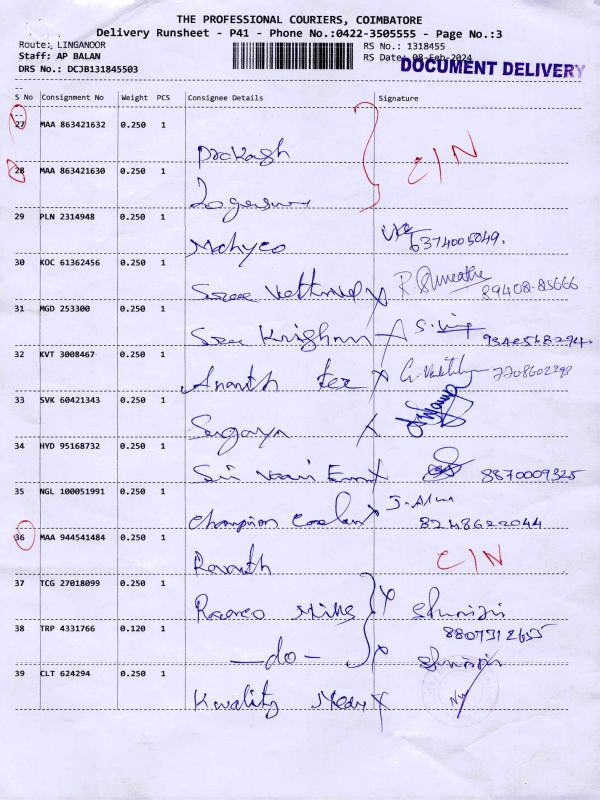 THE PROFESSIONAL COURIERS, COIMBATORE
Delivery Runsheet - P41 - Phone No.:0422-3505555 - Page No.:3
Route: LINGANOOR
RS No.: 1318455
Staff: AP BALAN
RS Date: 08-Feb-2024
DOCUMENT DELIVERY
DRS No.: DCJB131845503
S No Consignment No Weight PCS Consignee Details Signature
27 MAA 863421632 0.250 1
Prakash
C/N
28 MAA 863421630 0.250 1
29 PLN 2314948 0.250 1
Mahyco 6374005049.
30 KOC 61362456 0.250 1
Sree 89408-85666
31 MGD 253300 0.250 1
Sree Krishna
32 KVT 3008467 0.250 1
Ananth Tex
33 SVK 60421343 0.250 1
34 HYD 95168732 0.250 1
Sri 8870009325
35 NGL 100051991 0.250 1
Champion 8248622044
36 MAA 944541484 0.250 1
Revanth C/N
37 TCG 27018099 0.250 1
Mills
38 TRP 4331766 0.120 1
8807312655
-do-
39 CLT 624294 0.250 1
Kwality